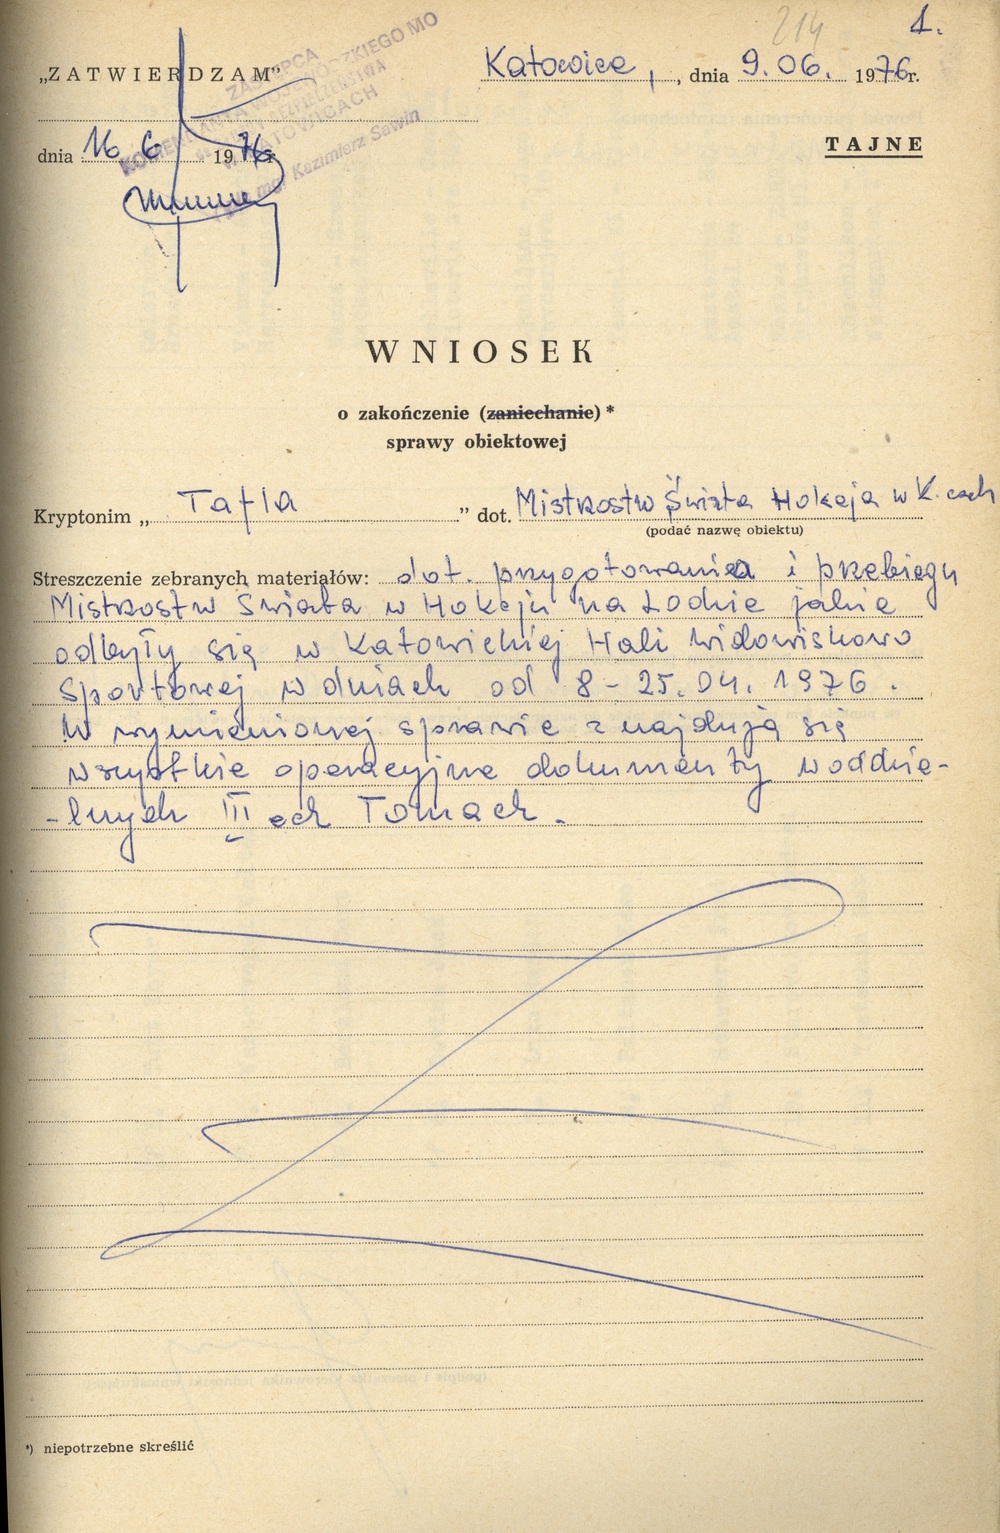 214
1.
„ZATWIERDZAM”
Katowice, dnia 9.06. 1976r.
dnia 16 6 1976r
TAJNE
ZASTĘPCA
KOMENDANTA WOJEWÓDZKIEGO MO
BEZPIECZEŃSTWA
W KATOWICACH
mgr Kazimierz Sawin
WNIOSEK
o zakończenie (zaniechanie)*
sprawy obiektowej
Kryptonim „ Tafla ” dot. Mistrzostw Świata Hokeja w K.cach
(podać nazwę obiektu)
Streszczenie zebranych materiałów: dot. przygotowania i przebiegu
Mistrzostw Świata w Hokeju na Lodzie jakie
odbyły się w Katowickiej Hali Widowiskowo
Sportowej w dniach od 8-25.04.1976.
W wymienionej sprawie znajdują się
wszystkie operacyjne dokumenty w oddzie-
-lnych III ech Tomach.
*) niepotrzebne skreślić